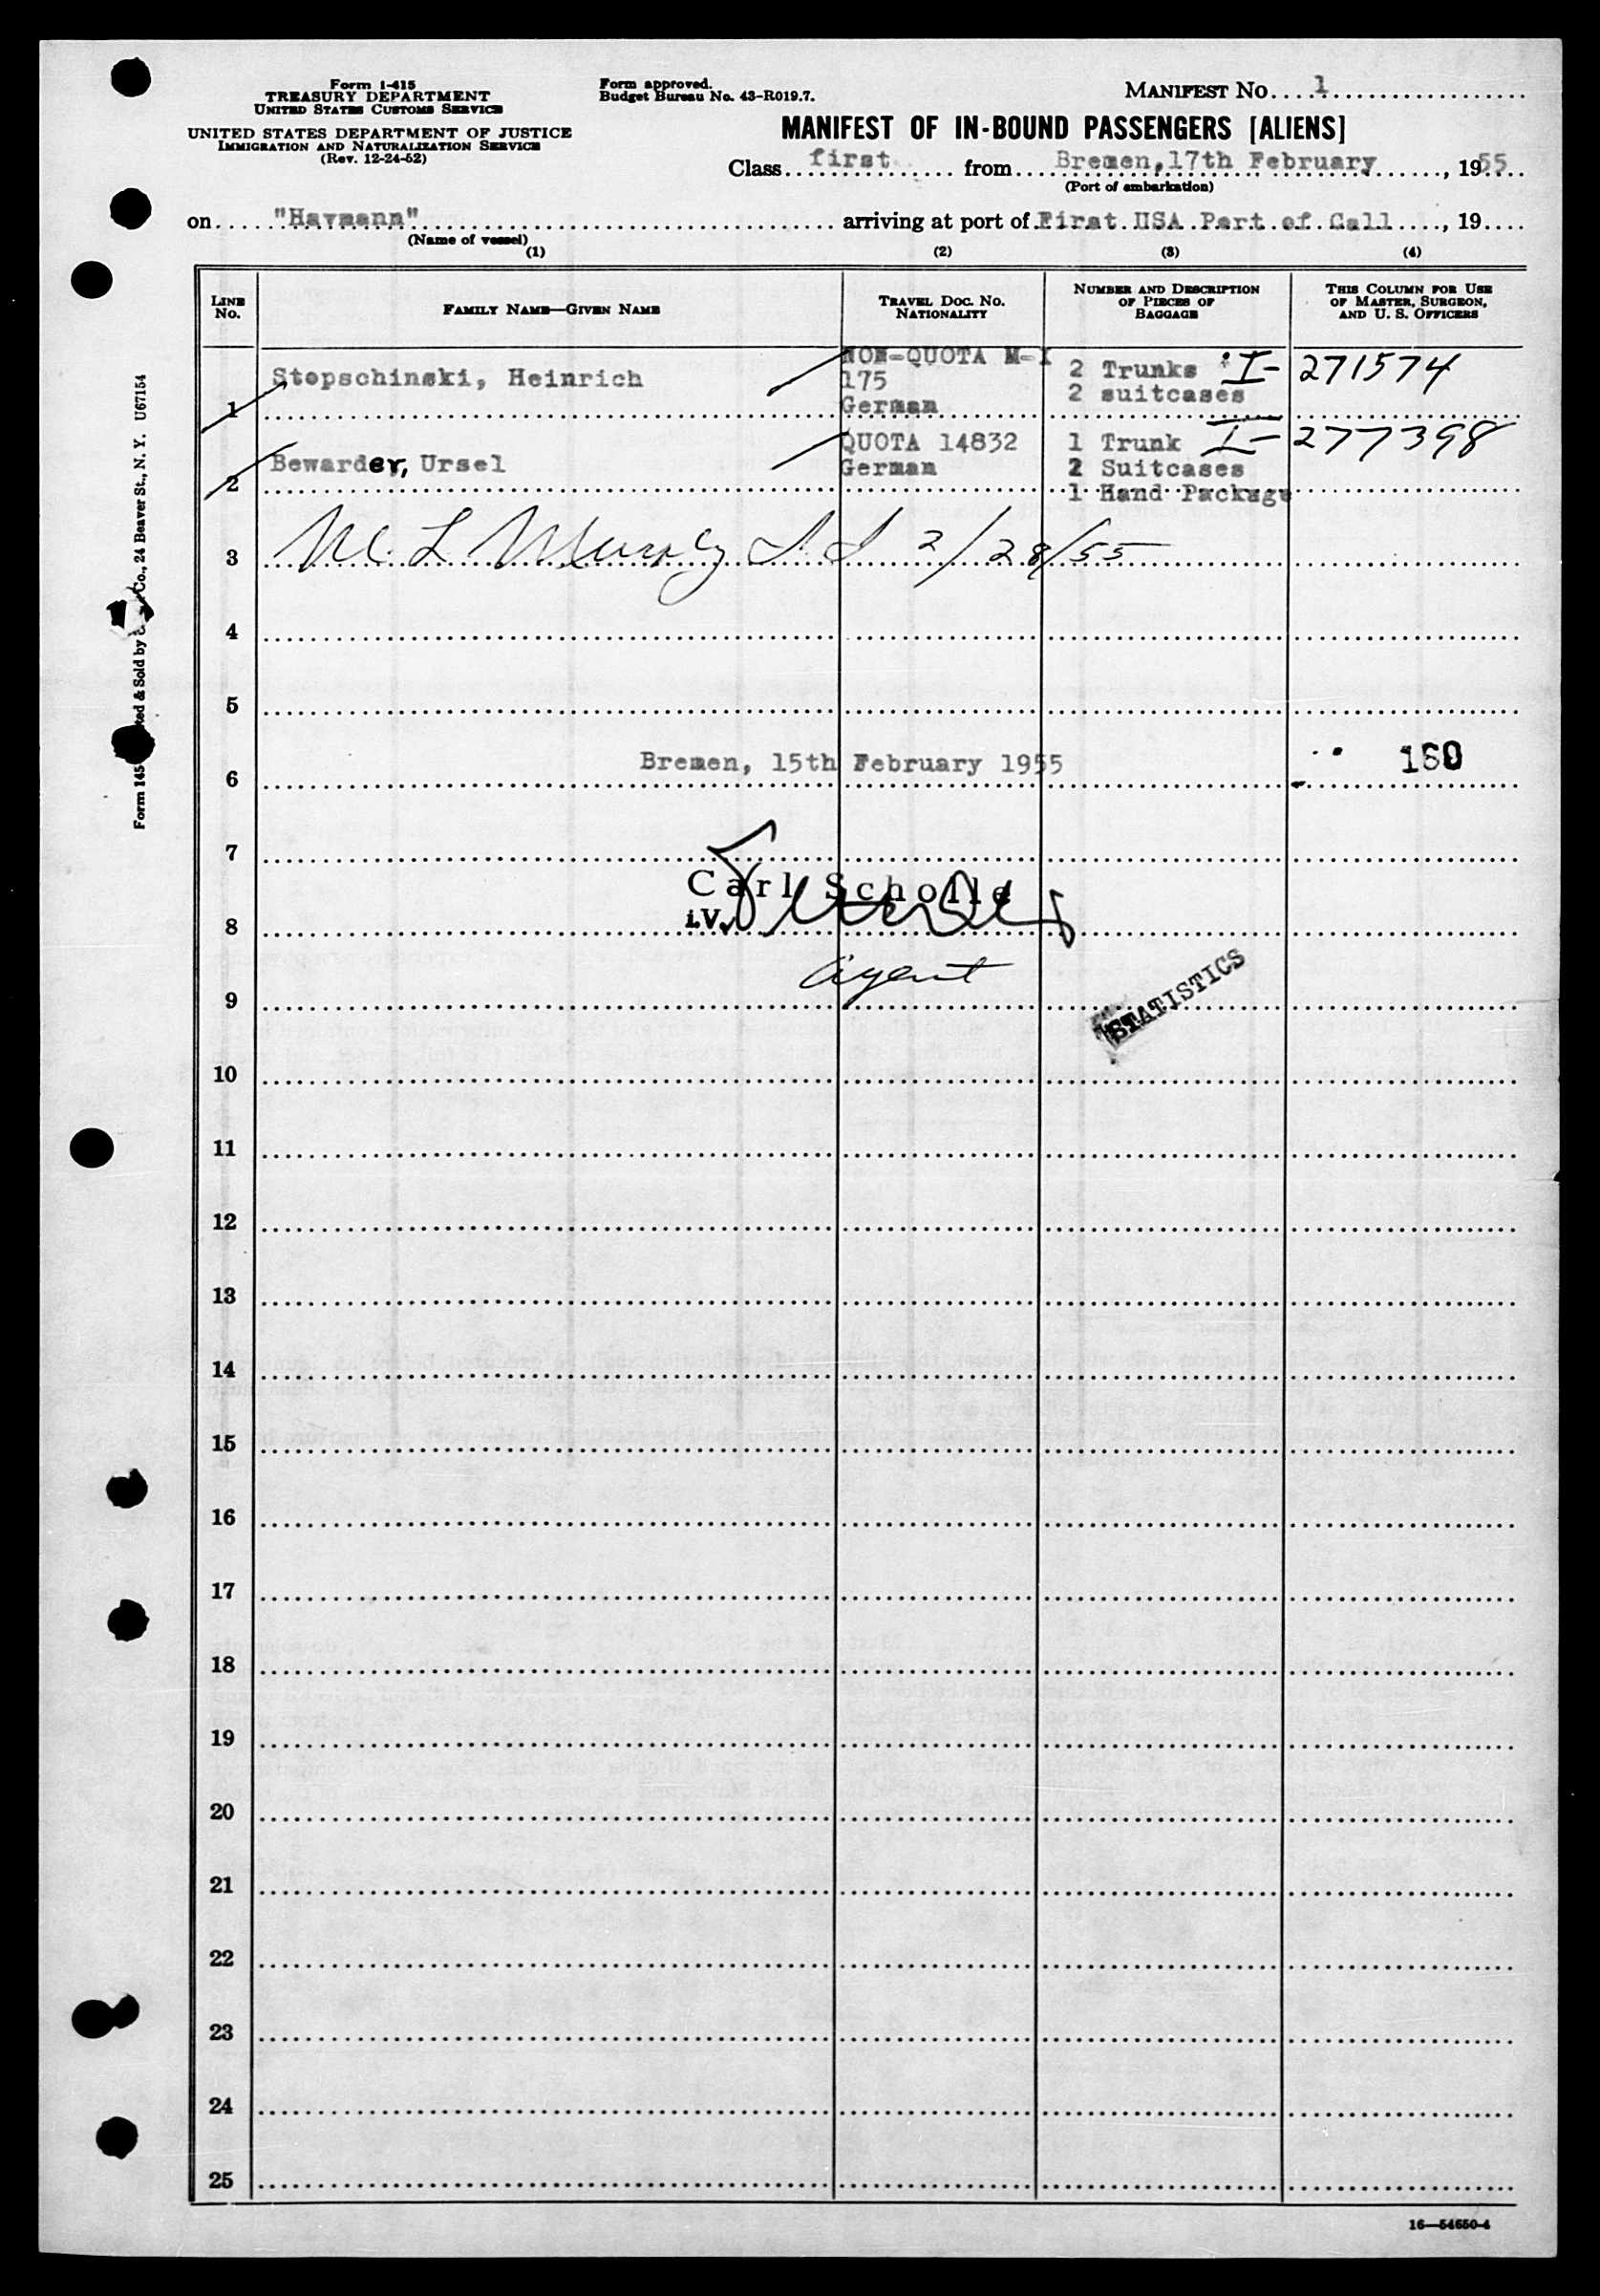 Form I-415
TREASURY DEPARTMENT
UNITED STATES CUSTOMS SERVICE
UNITED STATES DEPARTMENT OF JUSTICE
IMMIGRATION AND NATURALIZATION SERVICE
(Rev. 12-24-52)
Form approved.
Budget Bureau No. 43-R019.7.
MANIFEST NO. 1
MANIFEST OF IN-BOUND PASSENGERS [ALIENS]
Class first from Bremen, 17th February, 1955
(Port of embarkation)
on "Havmann" arriving at port of First USA Port of Call, 19
(Name of vessel)
(1) (2) (3) (4)
LINE NO.
FAMILY NAME—GIVEN NAME
TRAVEL DOC. NO. NATIONALITY
NUMBER AND DESCRIPTION OF PIECES OF BAGGAGE
THIS COLUMN FOR USE OF MASTER, SURGEON, AND U. S. OFFICERS
NON-QUOTA M-I
1 Stopschinski, Heinrich 175 2 Trunks I-271574
German 2 suitcases
QUOTA 14832 1 Trunk I-277398
2 Bewarder, Ursel German 2 Suitcases
1 Hand Package
3 M. L. 2/28/55
4
5
6 Bremen, 15th February 1955 160
7
Carl Scholle
8 i.V.
agent
9 STATISTICS
10
11
12
13
14
15
16
17
18
19
20
21
22
23
24
25
16—54650-4
Co., 24 Beaver St., N. Y. U67154